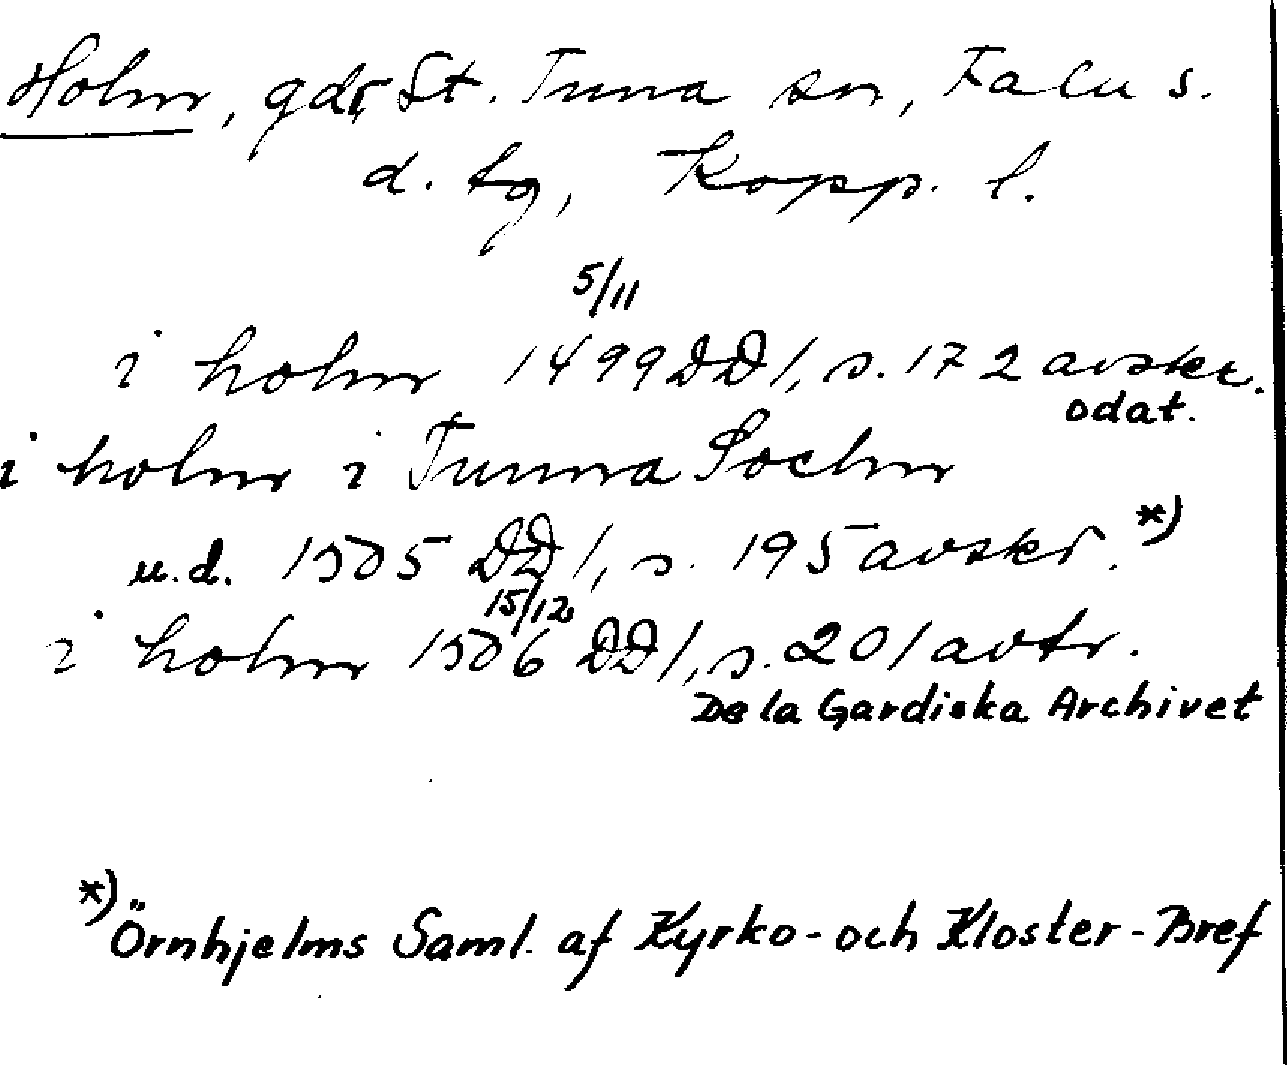 Holm, gdr, St. Tuna sn, Falu s.
d. tg, Kopp. l.
5/11
i holm 1499 DD 1, s. 172 avskr.
odat.
i holm i Tunna Sochn
u.d. 1505 DD 1, s. 195 avskr. *)
15/12
i holm 1506 DD 1, s. 201 avtr.
De la Gardiska Archivet
*) Örnhjelms Saml. af Kyrko- och Kloster-Bref